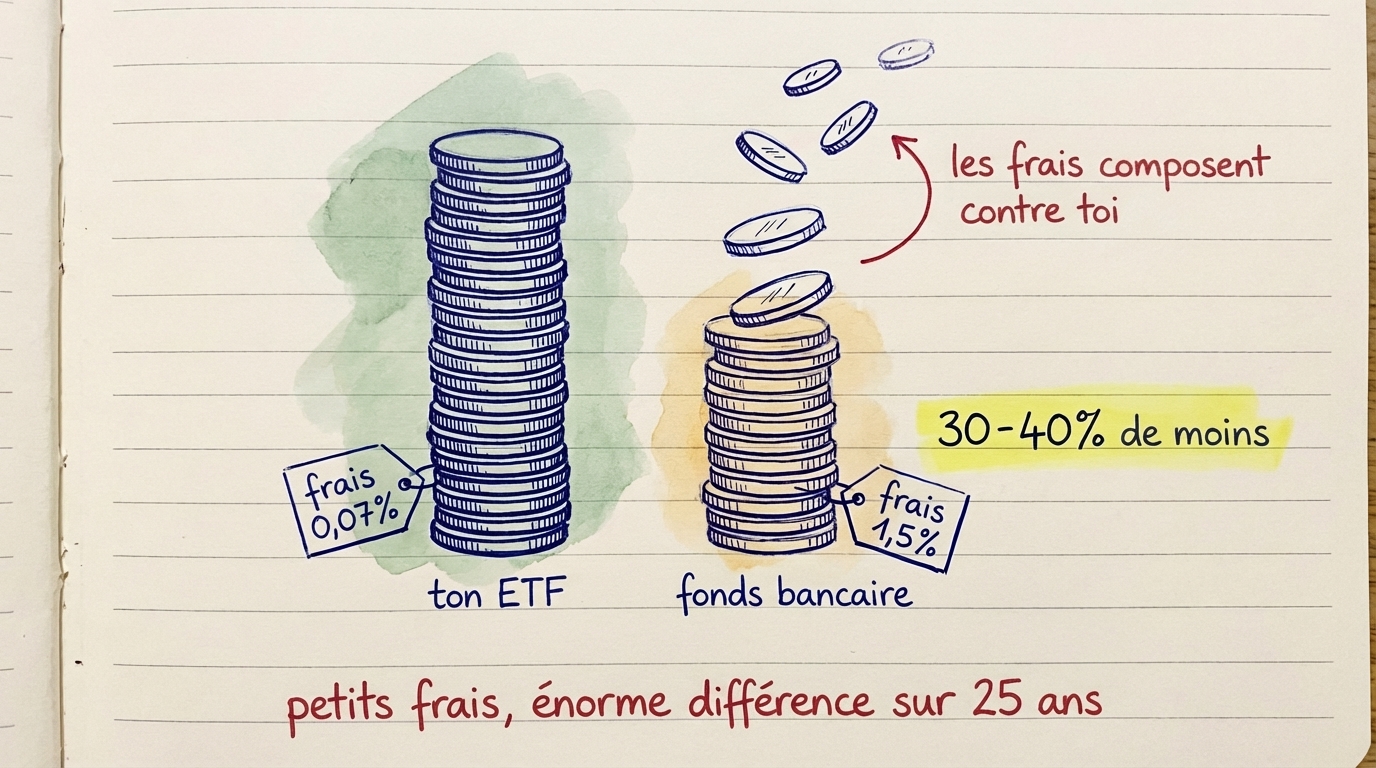 les frais composent
contre toi
30-40% de moins
frais
0,07%
frais
1,5%
ton ETF
fonds bancaire
petits frais, énorme différence sur 25 ans